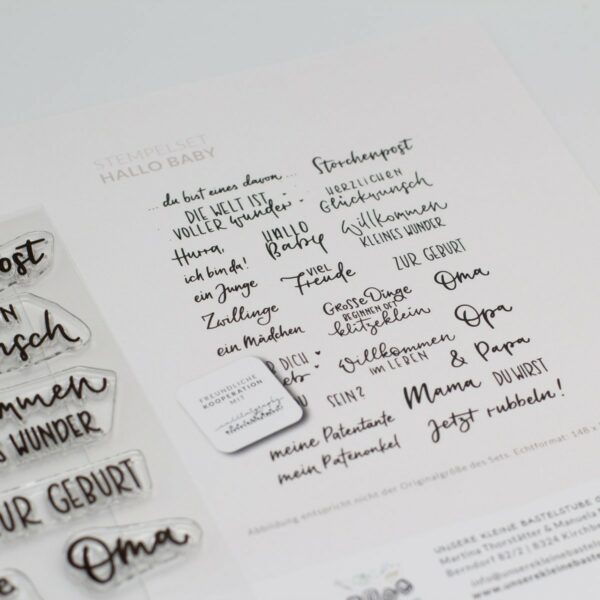 STEMPELSET
HALLO BABY
Storchenpost
du bist eines davon ...
HERZLICHEN
Glückwunsch
DIE WELT IST
VOLLER Wunder
Hurra,
HALLO
Baby
Willkommen
KLEINES WUNDER
ich bin da!
ein Junge
VIEL
Freude
ZUR GEBURT
Zwillinge
GROSSE Dinge
BEGINNEN OFT
klitzeklein
Oma
ein Mädchen
Opa
DICH
Willkommen
IM LEBEN
& Papa
SEIN?
Mama
DU WIRST
meine Patentante
Jetzt rubbeln!
mein Patenonkel
FREUNDLICHE
KOOPERATION
MIT
Abbildung entspricht nicht der Originalgröße des Sets. Echtformat: 148 x
UNSERE KLEINE BASTELSTUBE
Martina Thorstätter & Manuela
Berndorf 82/2 | 8324 Kirchb
info@unserekleinebastels
www.unserekleinebaste
ost
N
nsch
mmen
S WUNDER
ZUR GEBURT
Oma
e